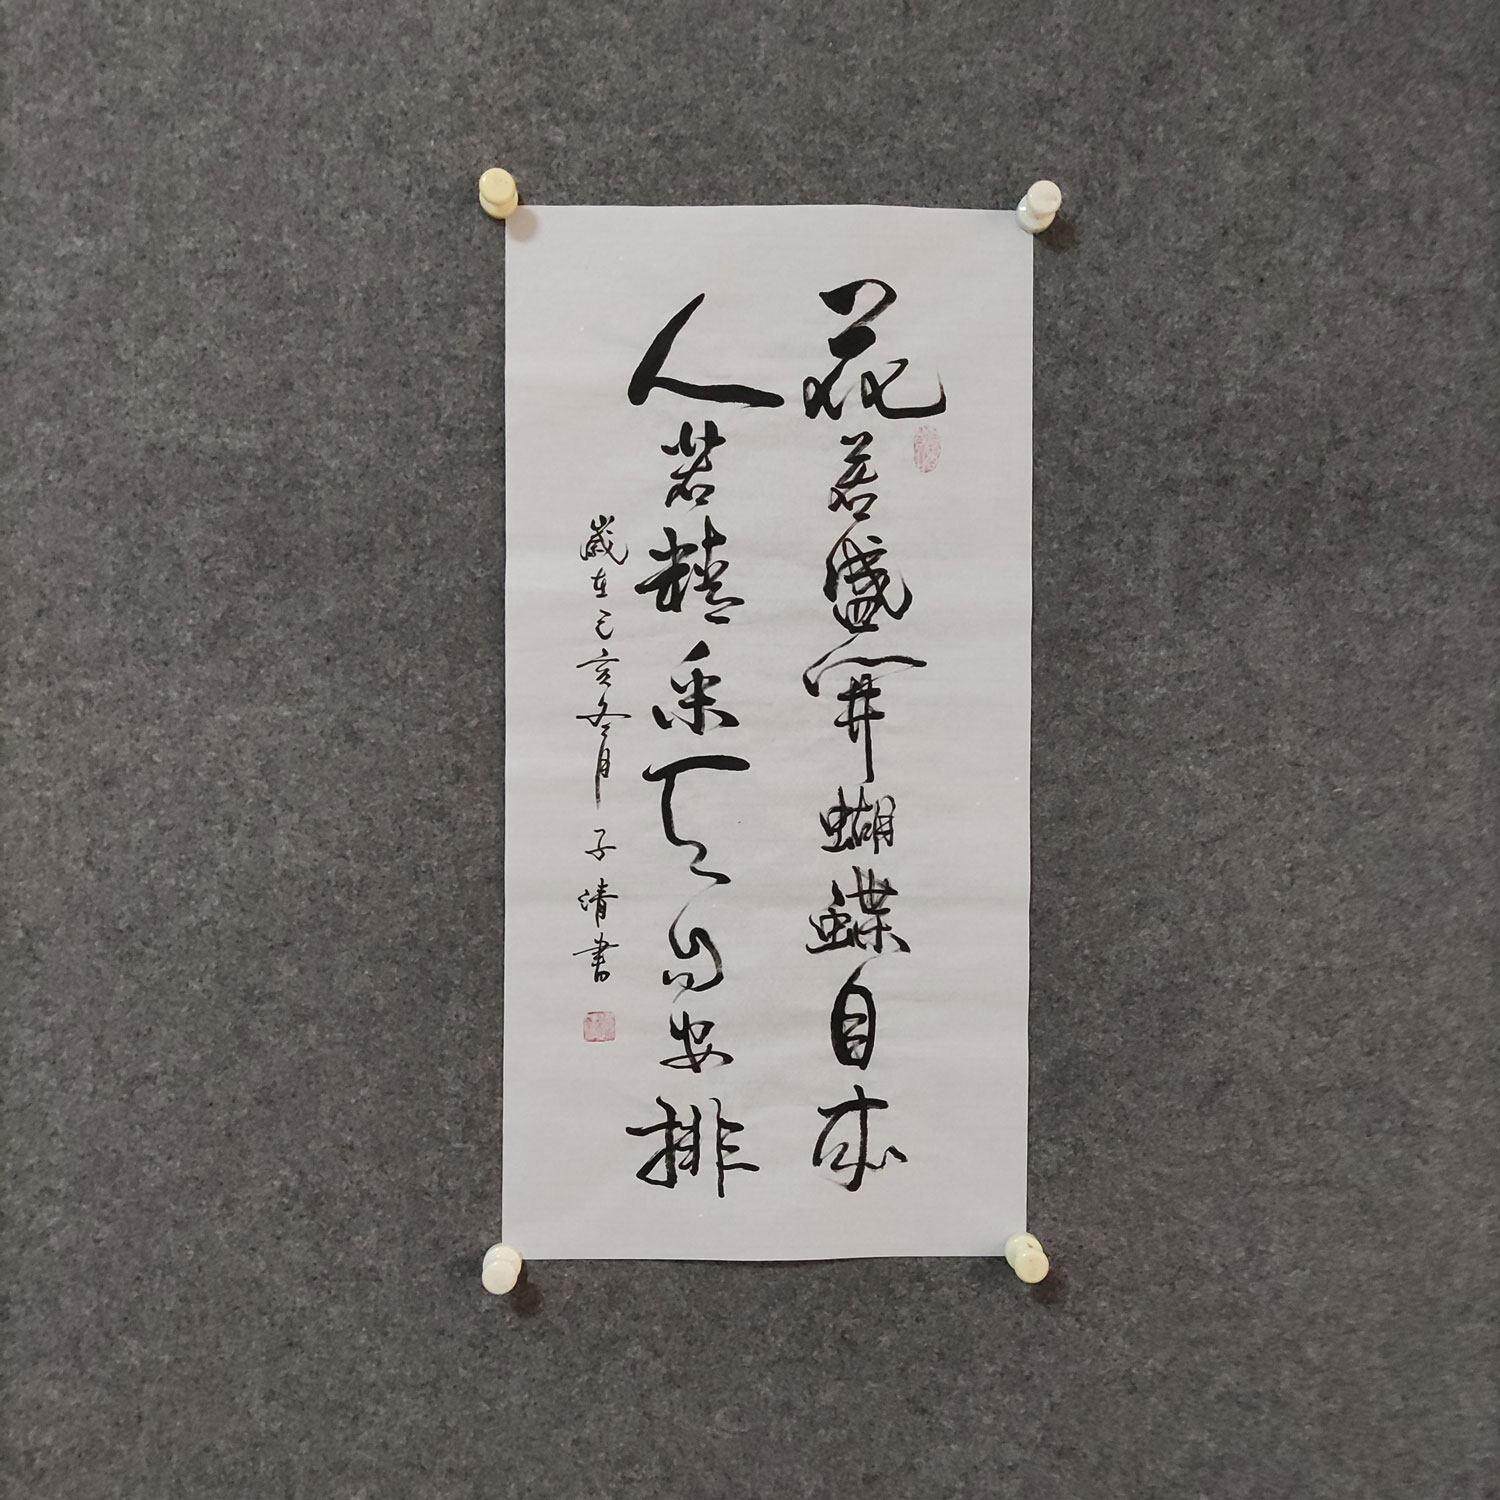 花若盛開蝴蝶自来
人若精采天自安排
歲在己亥冬月子清書